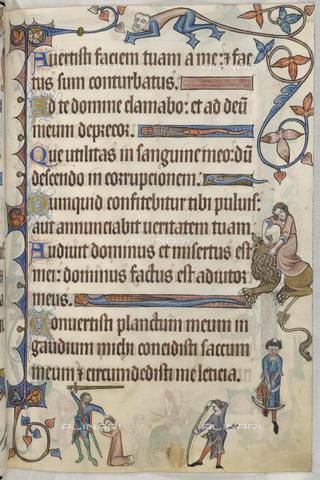 Auertisti faciem tuam a me: & fac
tus sum conturbatus.
Ad te domine clamabo: et ad deū
meum deprecor.
Que utilitas in sanguine meo: dū
descendo in corrupcionem.
Nunquid confitebitur tibi puluis:
aut annunciabit ueritatem tuam.
Audiuit dominus et misertus est
mei: dominus factus est adiutor
meus.
Conuertisti planctum meum in
gaudium michi concidisti saccum
meum & circumdedisti me leticia.
ALINARI
ALINARI
ALINARI
ALINARI